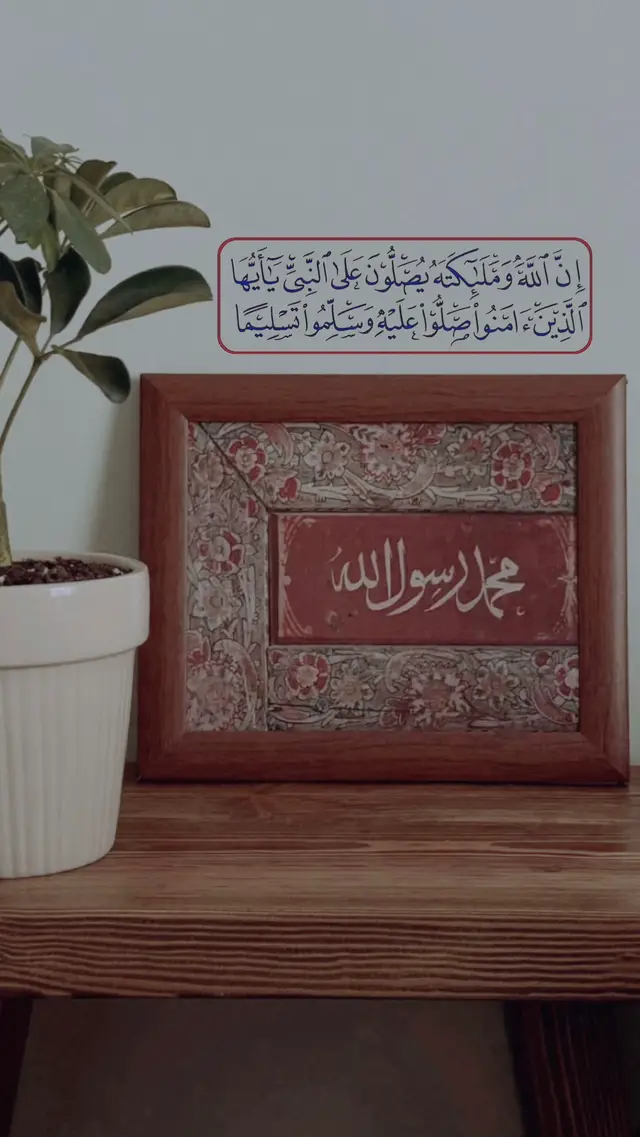 إِنَّ ٱللَّهَ وَمَلَـٰٓئِكَتَهُۥ يُصَلُّونَ عَلَى ٱلنَّبِىِّ يَـٰٓأَيُّهَا
ٱلَّذِينَ ءَامَنُوا۟ صَلُّوا۟ عَلَيْهِ وَسَلِّمُوا۟ تَسْلِيمًا
محمد رسول الله